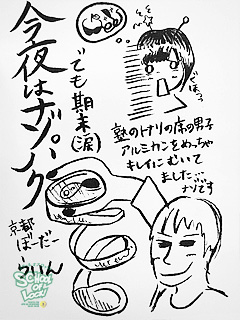 今夜はナゾパーク
でも期末(涙)
塾のトナリの席の男子
アルミカンをめっちゃ
キレイにむいて
ました…
ナゾです
京都
ぼーだー
らいん
SCHOOL OF LOCK!